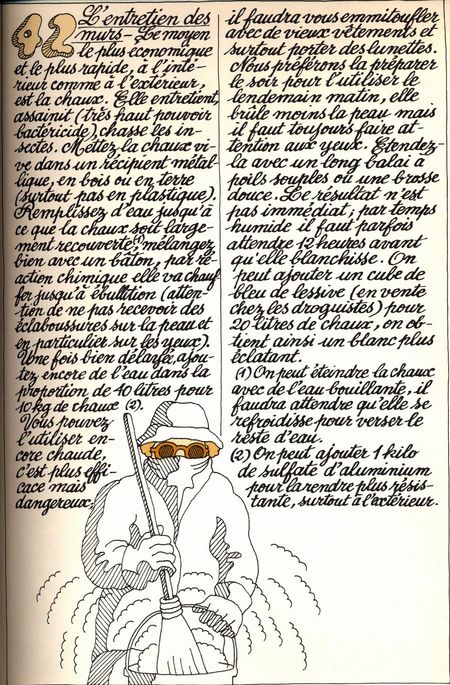 42
L'entretien des
murs - Le moyen
le plus économique
et le plus rapide, à l'inté-
rieur comme à l'extérieur,
est la chaux. Elle entretient,
assainit (très haut pouvoir
bactéricide), chasse les in-
sectes. Mettez la chaux vi-
ve dans un récipient métal-
lique, en bois ou en terre
(surtout pas en plastique).
Remplissez d'eau jusqu'à
ce que la chaux soit large-
ment recouverte(1), mélangez
bien avec un bâton, par ré-
action chimique elle va chauf-
fer jusqu'à ébullition (atten-
tion de ne pas recevoir des
éclaboussures sur la peau et
en particulier sur les yeux).
Une fois bien délayée, ajou-
tez encore de l'eau dans la
proportion de 10 litres pour
10 kg de chaux (2).
Vous pouvez
l'utiliser en-
core chaude,
c'est plus effi-
cace mais
dangereux:
il faudra vous emmitoufler
avec de vieux vêtements et
surtout porter des lunettes.
Nous préférons la préparer
le soir pour l'utiliser le
lendemain matin, elle
brûle moins la peau mais
il faut toujours faire at-
tention aux yeux. Étendez-
la avec un long balai à
poils souples ou une brosse
douce. Le résultat n'est
pas immédiat; par temps
humide il faut parfois
attendre 12 heures avant
qu'elle blanchisse. On
peut ajouter un cube de
bleu de lessive (en vente
chez les droguistes) pour
20 litres de chaux, on ob-
tient ainsi un blanc plus
éclatant.
(1) On peut éteindre la chaux
avec de l'eau bouillante, il
faudra attendre qu'elle se
refroidisse pour verser le
reste d'eau.
(2) On peut ajouter 1 kilo
de sulfate d'aluminium
pour la rendre plus résis-
tante, surtout à l'extérieur.